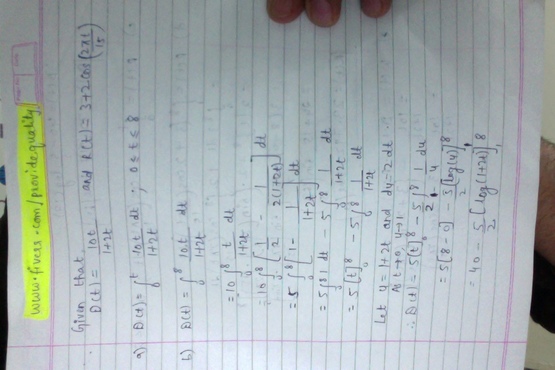 www.fiverr.com/providequality
Given that
D(t) = 10t/(1+2t) and R(t) = 3+2cos(2πt/15)
a) D(t) = ∫₀ᵗ 10t/(1+2t) dt, 0 ≤ t ≤ 8
b) D(t) = ∫₀⁸ 10t/(1+2t) dt
= 10∫₀⁸ t/(1+2t) dt
= 10∫₀⁸ [1/2 - 1/2(1+2t)] dt
= 5∫₀⁸ [1 - 1/(1+2t)] dt
= 5∫₀⁸ 1 dt - 5∫₀⁸ 1/(1+2t) dt
= 5[t]₀⁸ - 5∫₀⁸ 1/(1+2t) dt
Let u = 1+2t and du = 2 dt
As t→0, u→1
∴ D(t) = 5[t]₀⁸ - 5/2 ∫₁⁸ du/u
= 5[8-0] - 5/2 [log(u)]₁⁸
= 40 - 5/2 [log(1+2t)]₁⁸